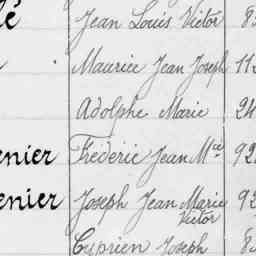 lé Jean Louis Victor 8
Maurice Jean Joseph 11
Adolphe Marie 24
enier Frédéric Jean Mie 92
enier Joseph Jean Marie 92
Victor
Cyprien Joseph 8